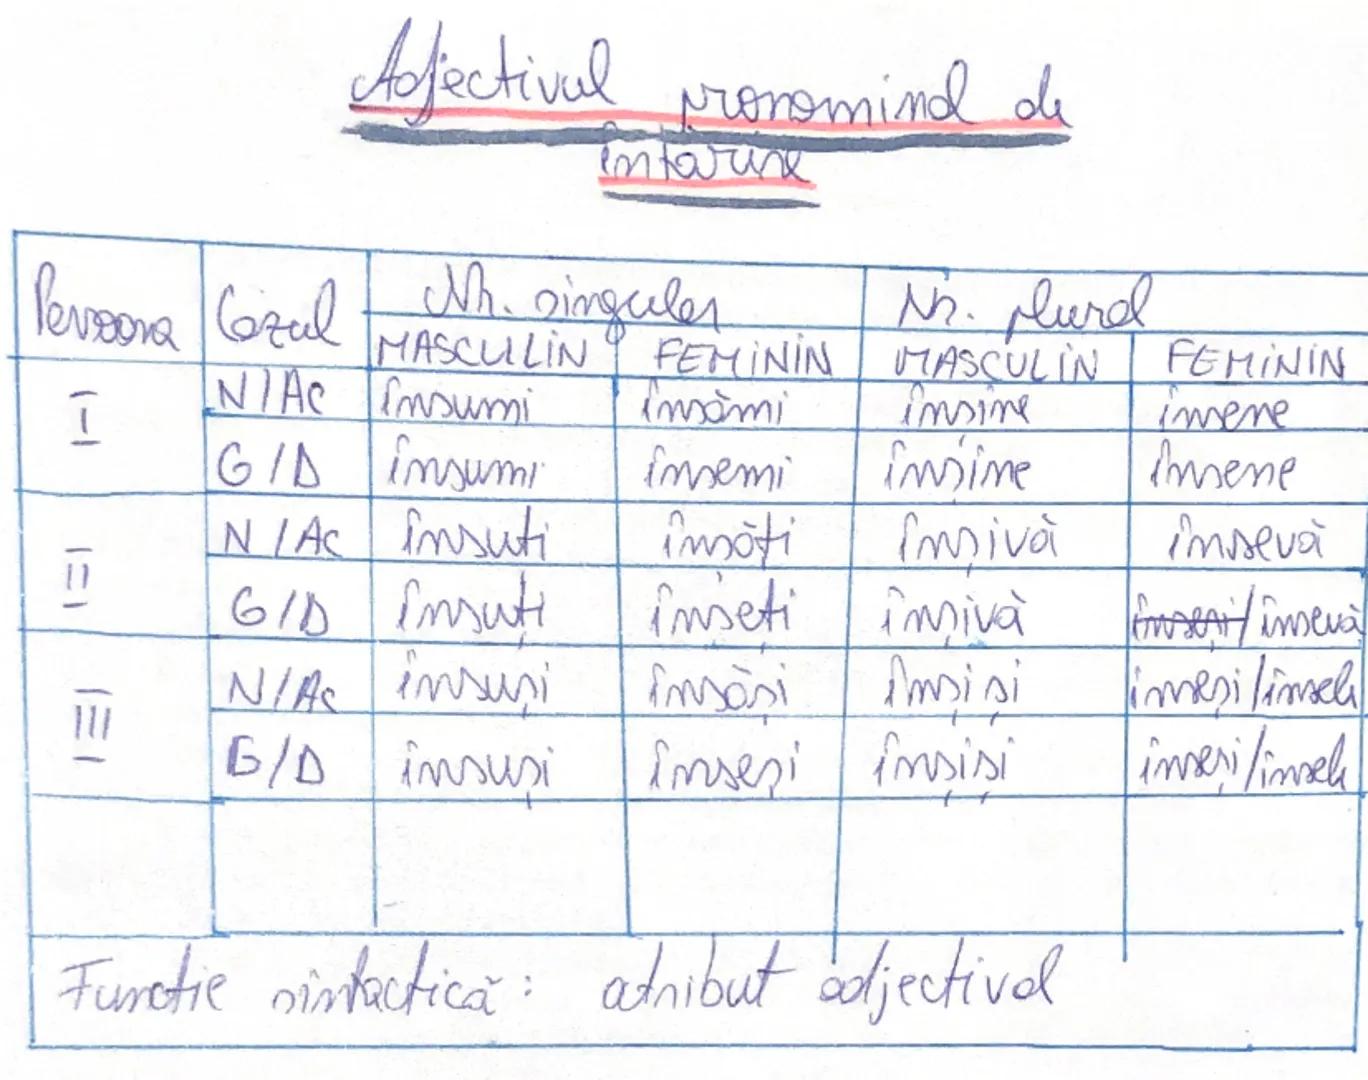 Adjectivul pronominal de
întărire
Persoana Cazul Nr. singular Nr. plural
MASCULIN FEMININ MASCULIN FEMININ
I N/Ac însumi însămi înșine însene
G/D însumi însemi înșine însene
II N/Ac însuți însăți înșivă însevă
G/D însuți înseți înșivă înseși/însevă
III N/Ac însuși însăși înșiși înseși/însele
G/D însuși înseși înșiși înseși/însele
Funcție sintactică: atribut adjectival